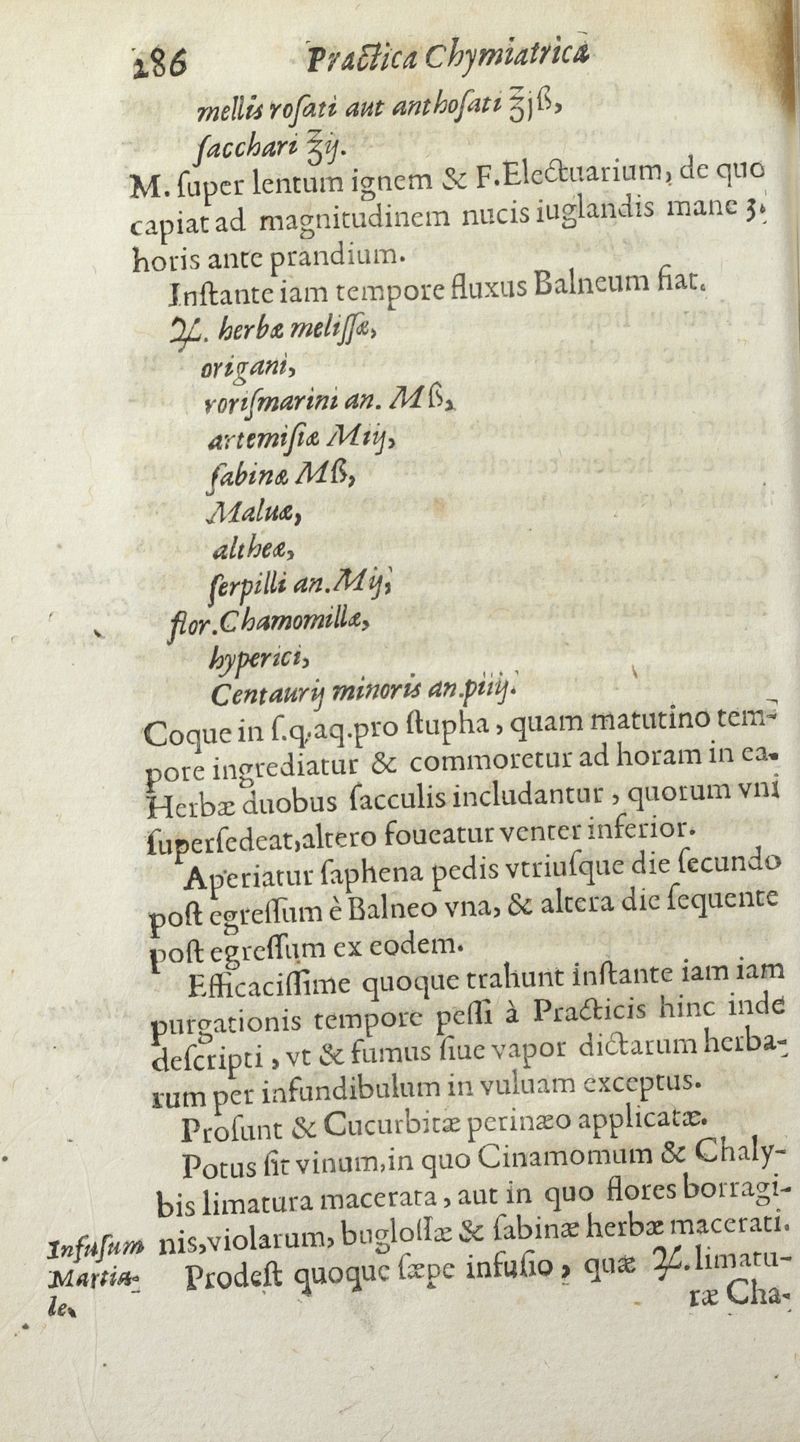 286 Practica Chymiatrica
mellis rosati aut anthosati ℥jß,
sacchari ℥ij.
M. super lentum ignem & F. Electuarium, de quo
capiat ad magnitudinem nucis iuglandis mane 3.
horis ante prandium.
Instante iam tempore fluxus Balneum fiat.
♃. herbæ melissæ,
origani,
rorismarini an. Mß,
artemisiæ Miij,
sabinæ Mß,
Maluæ,
altheæ,
serpilli an. Mij,
flor. Chamomillæ,
hyperici,
Centaurij minoris an. piiij.
Coque in s.q. aq. pro stupha, quam matutino tem-
pore ingrediatur & commoretur ad horam in ea.
Herbæ duobus sacculis includantur, quorum vni
supersedeat, altero foueatur venter inferior.
Aperiatur saphena pedis vtriusque die secundo
post egressum è Balneo vna, & altera die sequente
post egressum ex eodem.
Efficacissime quoque trahunt instante iam iam
purgationis tempore pessi à Practicis hinc inde
descripti, vt & fumus siue vapor dictarum herba-
rum per infundibulum in vuluam exceptus.
Prosunt & Cucurbitæ perinæo applicatæ.
Potus sit vinum, in quo Cinamomum & Chaly-
bis limatura macerata, aut in quo flores borragi-
nis, violarum, buglossæ & sabinæ herbæ macerati.
Infusum
Martia-
le.
Prodest quoque sæpe infusio, quæ ♃. limatu-
ræ Cha-